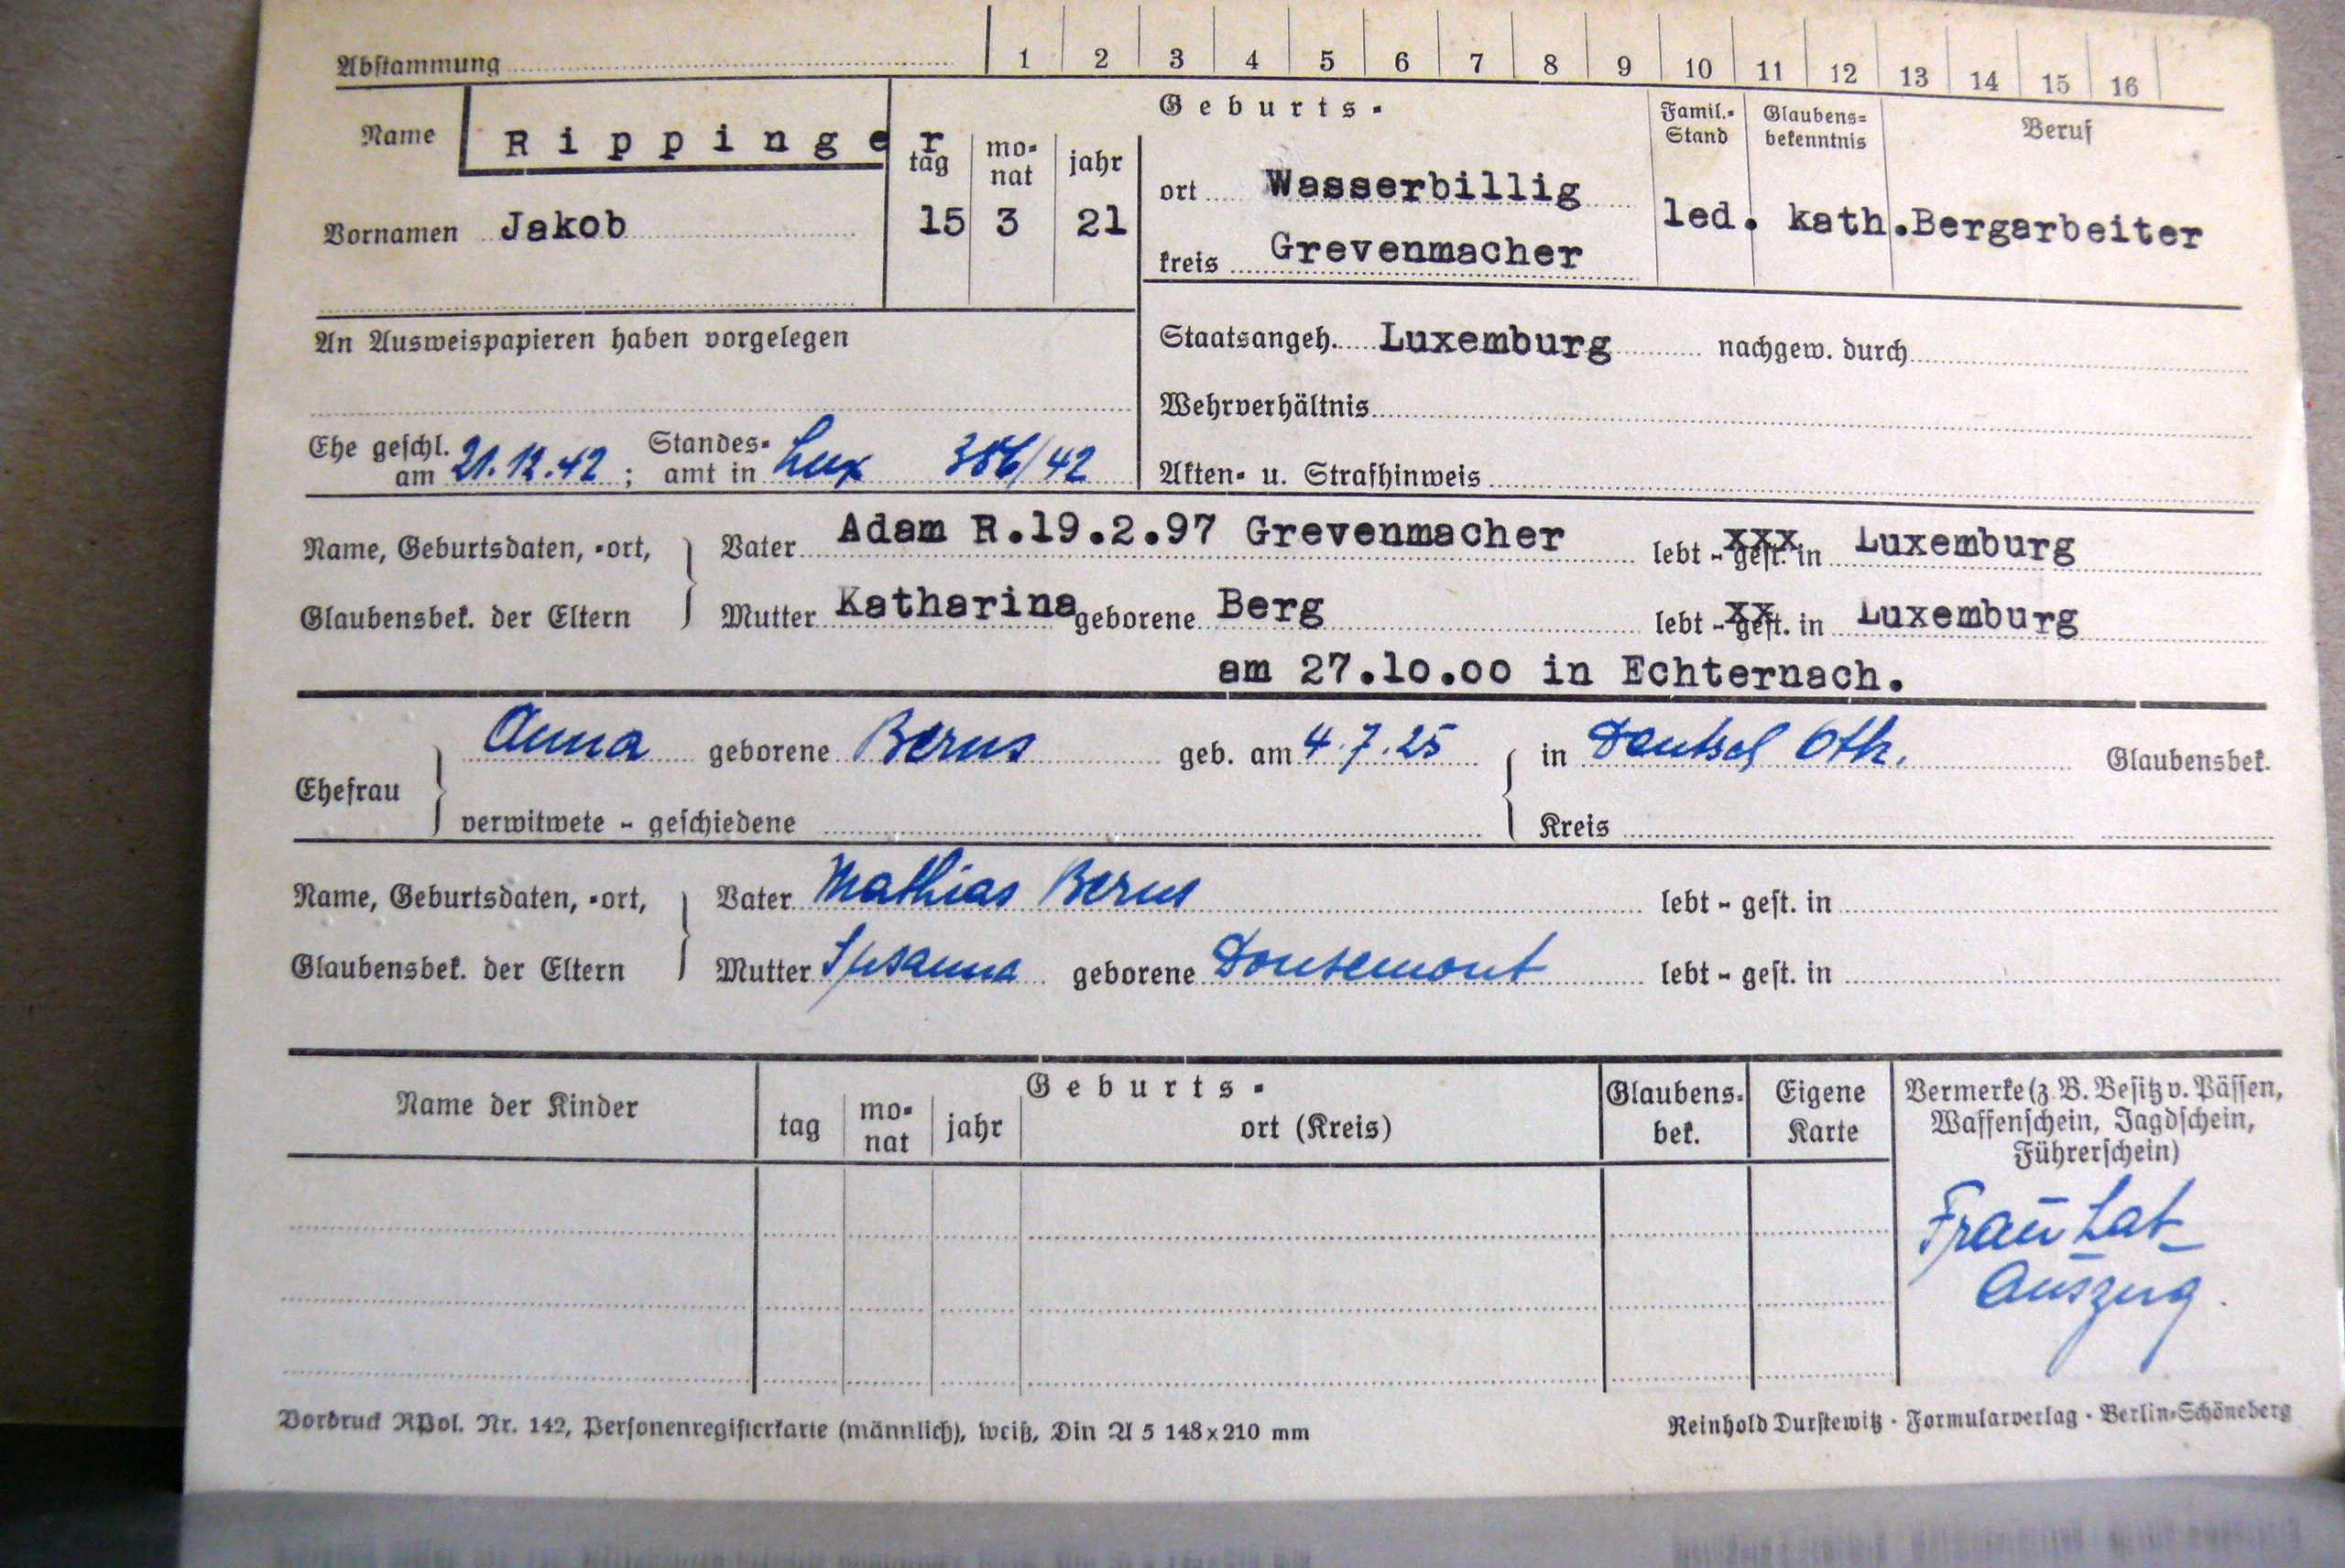 Abstammung 1 2 3 4 5 6 7 8 9 10 11 12 13 14 15 16
Name Rippinger
Geburts-
tag monat jahr
Famil.-Stand Glaubensbekenntnis Beruf
Vornamen Jakob 15 3 21
ort Wasserbillig
led. kath. Bergarbeiter
kreis Grevenmacher
An Ausweispapieren haben vorgelegen
Staatsangeh. Luxemburg nachgew. durch
Wehrverhältnis
Ehe geschl. am 21.12.42; Standesamt in Lux 386/42
Akten- u. Strafhinweis
Name, Geburtsdaten, -ort, Vater Adam R.19.2.97 Grevenmacher lebt - gest. in Luxemburg
Glaubensbek. der Eltern Mutter Katharina geborene Berg lebt - gest. in Luxemburg
am 27.10.00 in Echternach.
Ehefrau Anna geborene Berus geb. am 4.7.25 in Deutsch Oth. Glaubensbek.
verwitwete - geschiedene Kreis
Name, Geburtsdaten, -ort, Vater Mathias Berus lebt - gest. in
Glaubensbek. der Eltern Mutter Susanna geborene Donsemont lebt - gest. in
Name der Kinder
Geburts-
tag monat jahr ort (Kreis)
Glaubens-bek.
Eigene Karte
Vermerke (z. B. Besitz v. Pässen,
Waffenschein, Jagdschein,
Führerschein)
Frau Lat-
Auszug.
Vordruck RPol. Nr. 142, Personenregisterkarte (männlich), weiß, Din A 5 148x210 mm
Reinhold Durstewitz · Formularverlag · Berlin-Schöneberg